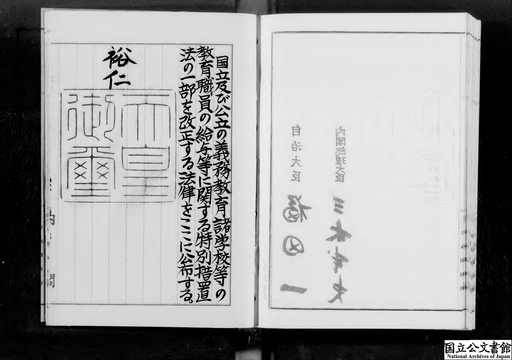 内閣総理大臣 三木武夫
自治大臣 福田一
国立及び公立の義務教育諸学校等の
教育職員の給与等に関する特別措置
法の一部を改正する法律をここに公布する。
裕仁
天皇
御璽
内閣
国立公文書館
National Archives of Japan